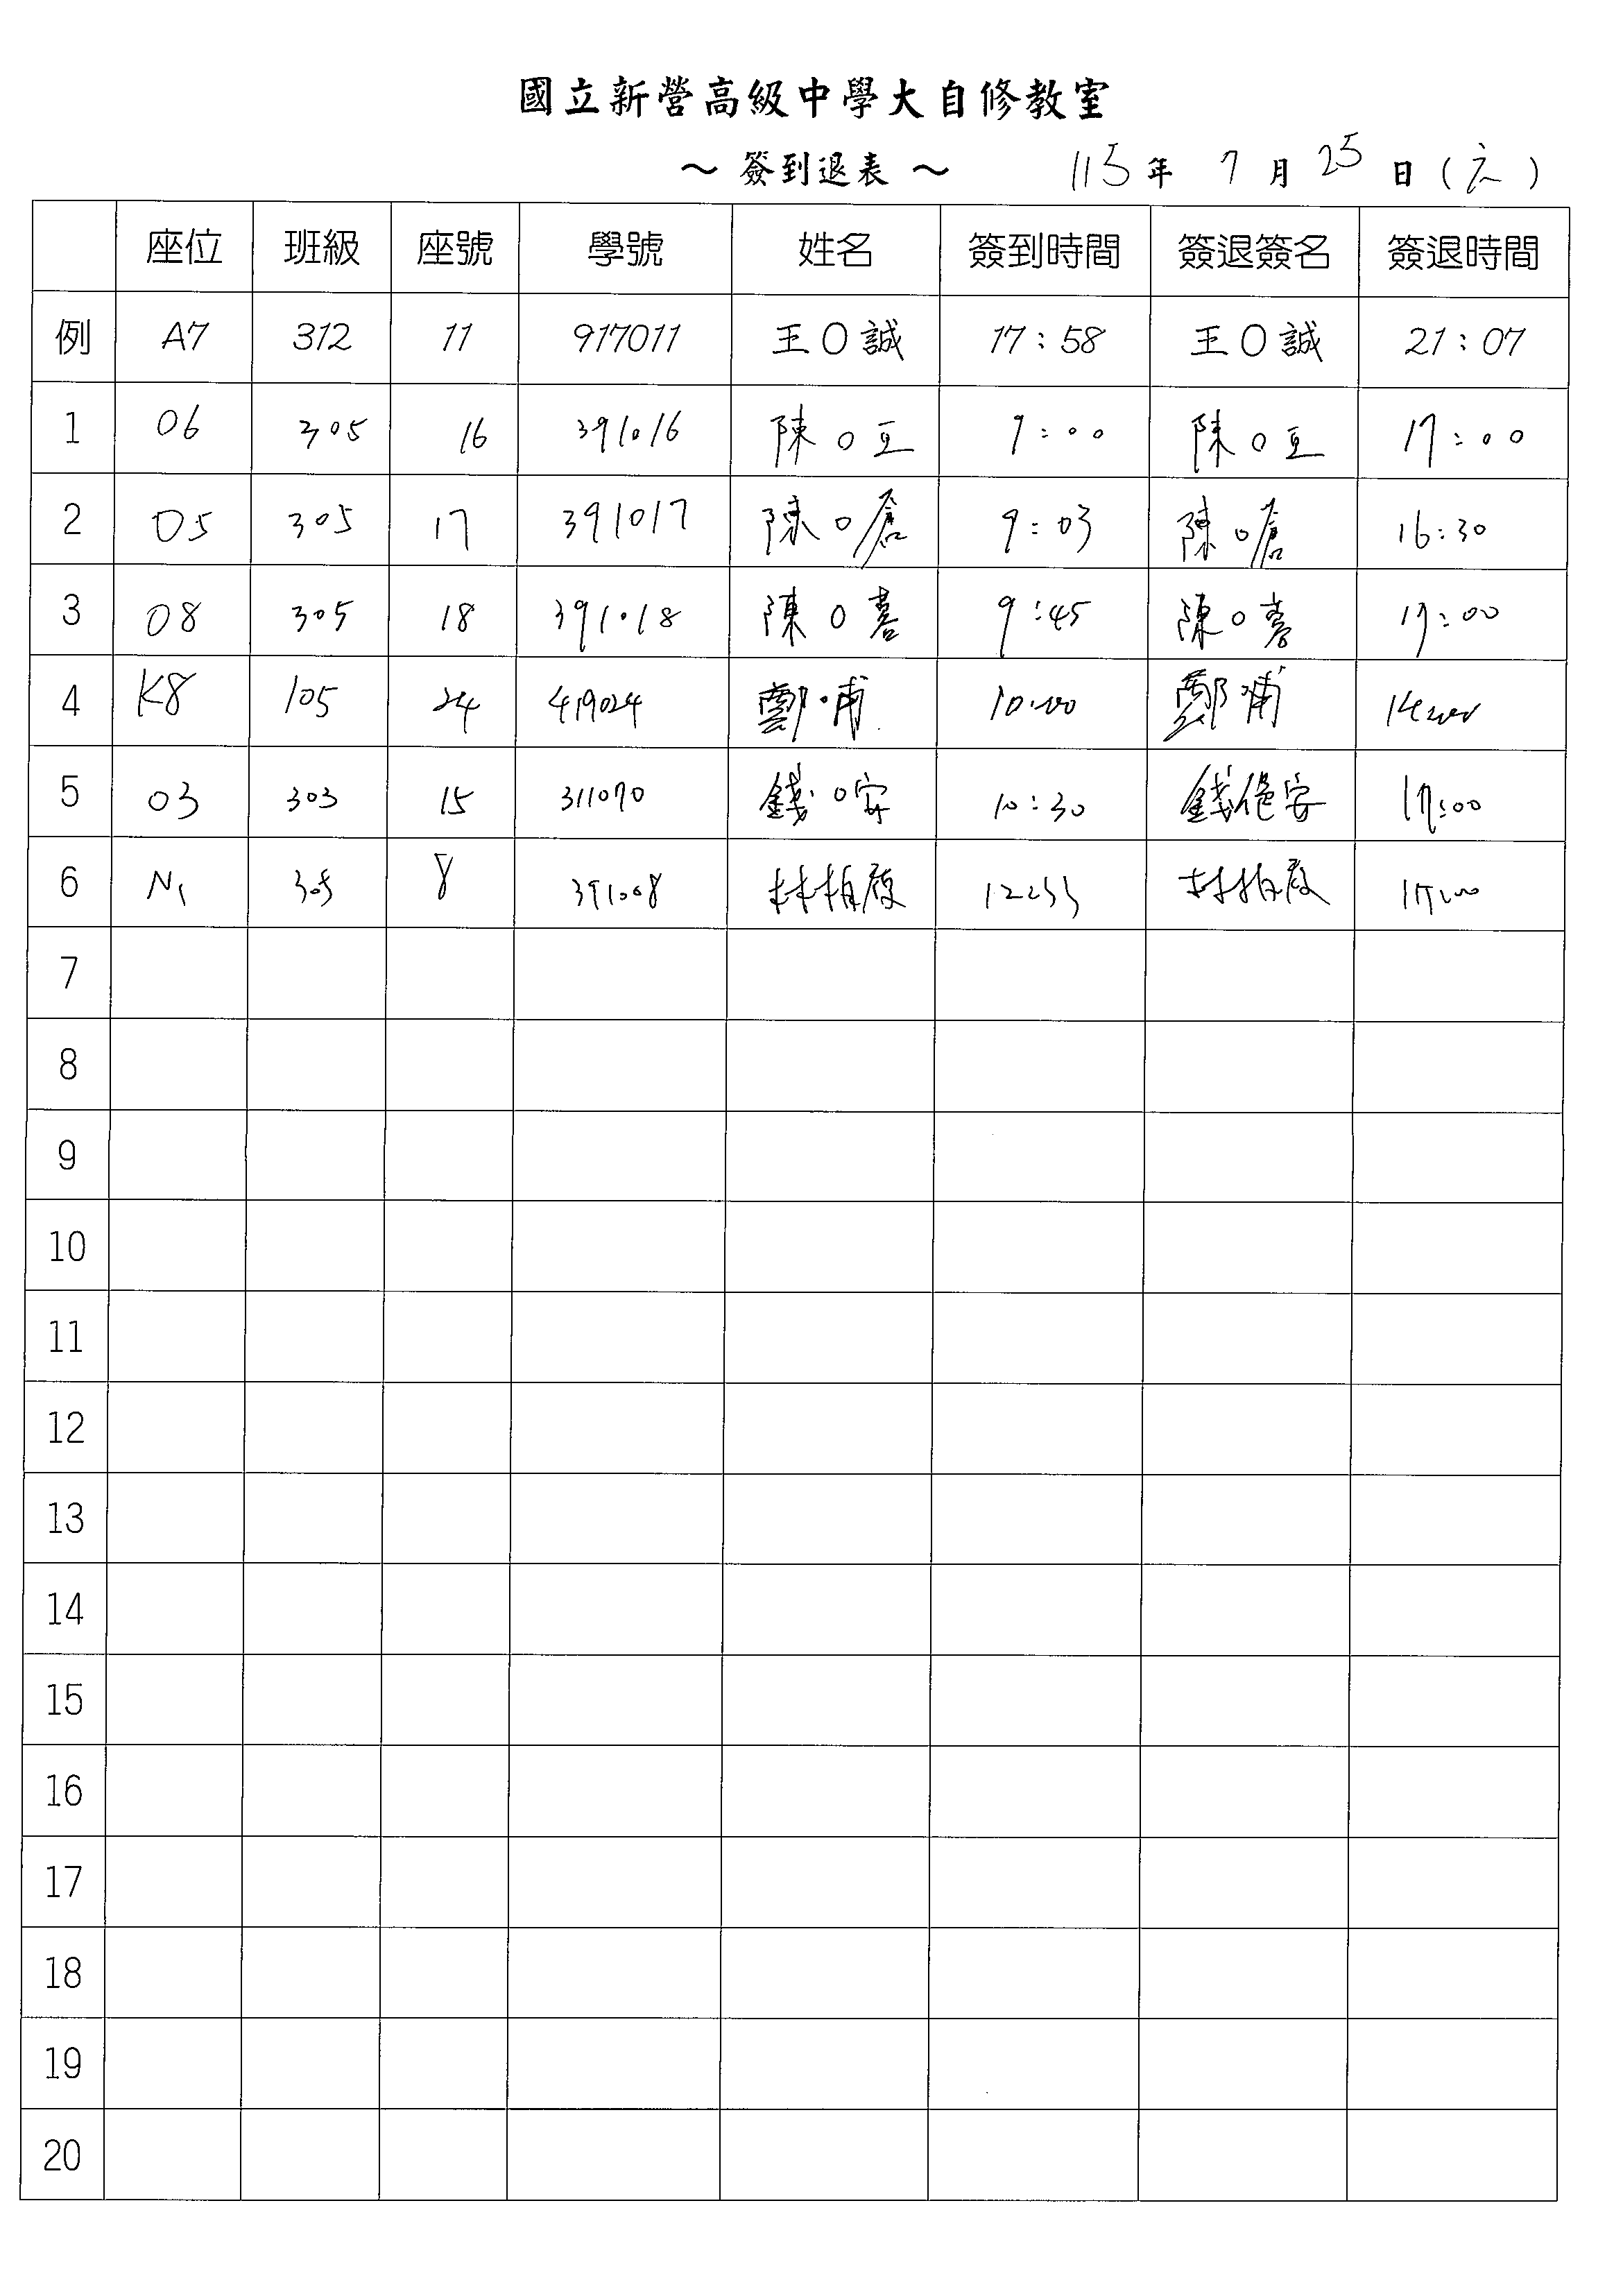 國立新營高級中學大自修教室
～ 簽到退表 ～ 115 年 7 月 25 日 ( 六 )
座位 班級 座號 學號 姓名 簽到時間 簽退簽名 簽退時間
例 A7 312 11 917011 王O誠 17:58 王O誠 21:07
1 06 305 16 391016 陳O亘 9:00 陳O亘 17:00
2 05 305 17 391017 陳O愴 9:03 陳O愴 16:30
3 08 305 18 391018 陳O熹 9:45 陳O熹 17:00
4 K8 105 24 419024 鄭 浦 10:00 鄭 浦 14:00
5 03 303 15 311070 錢O安 10:30 錢 安 17:00
6 N1 305 8 391008 林柏 12:33 林柏 17:00
7
8
9
10
11
12
13
14
15
16
17
18
19
20